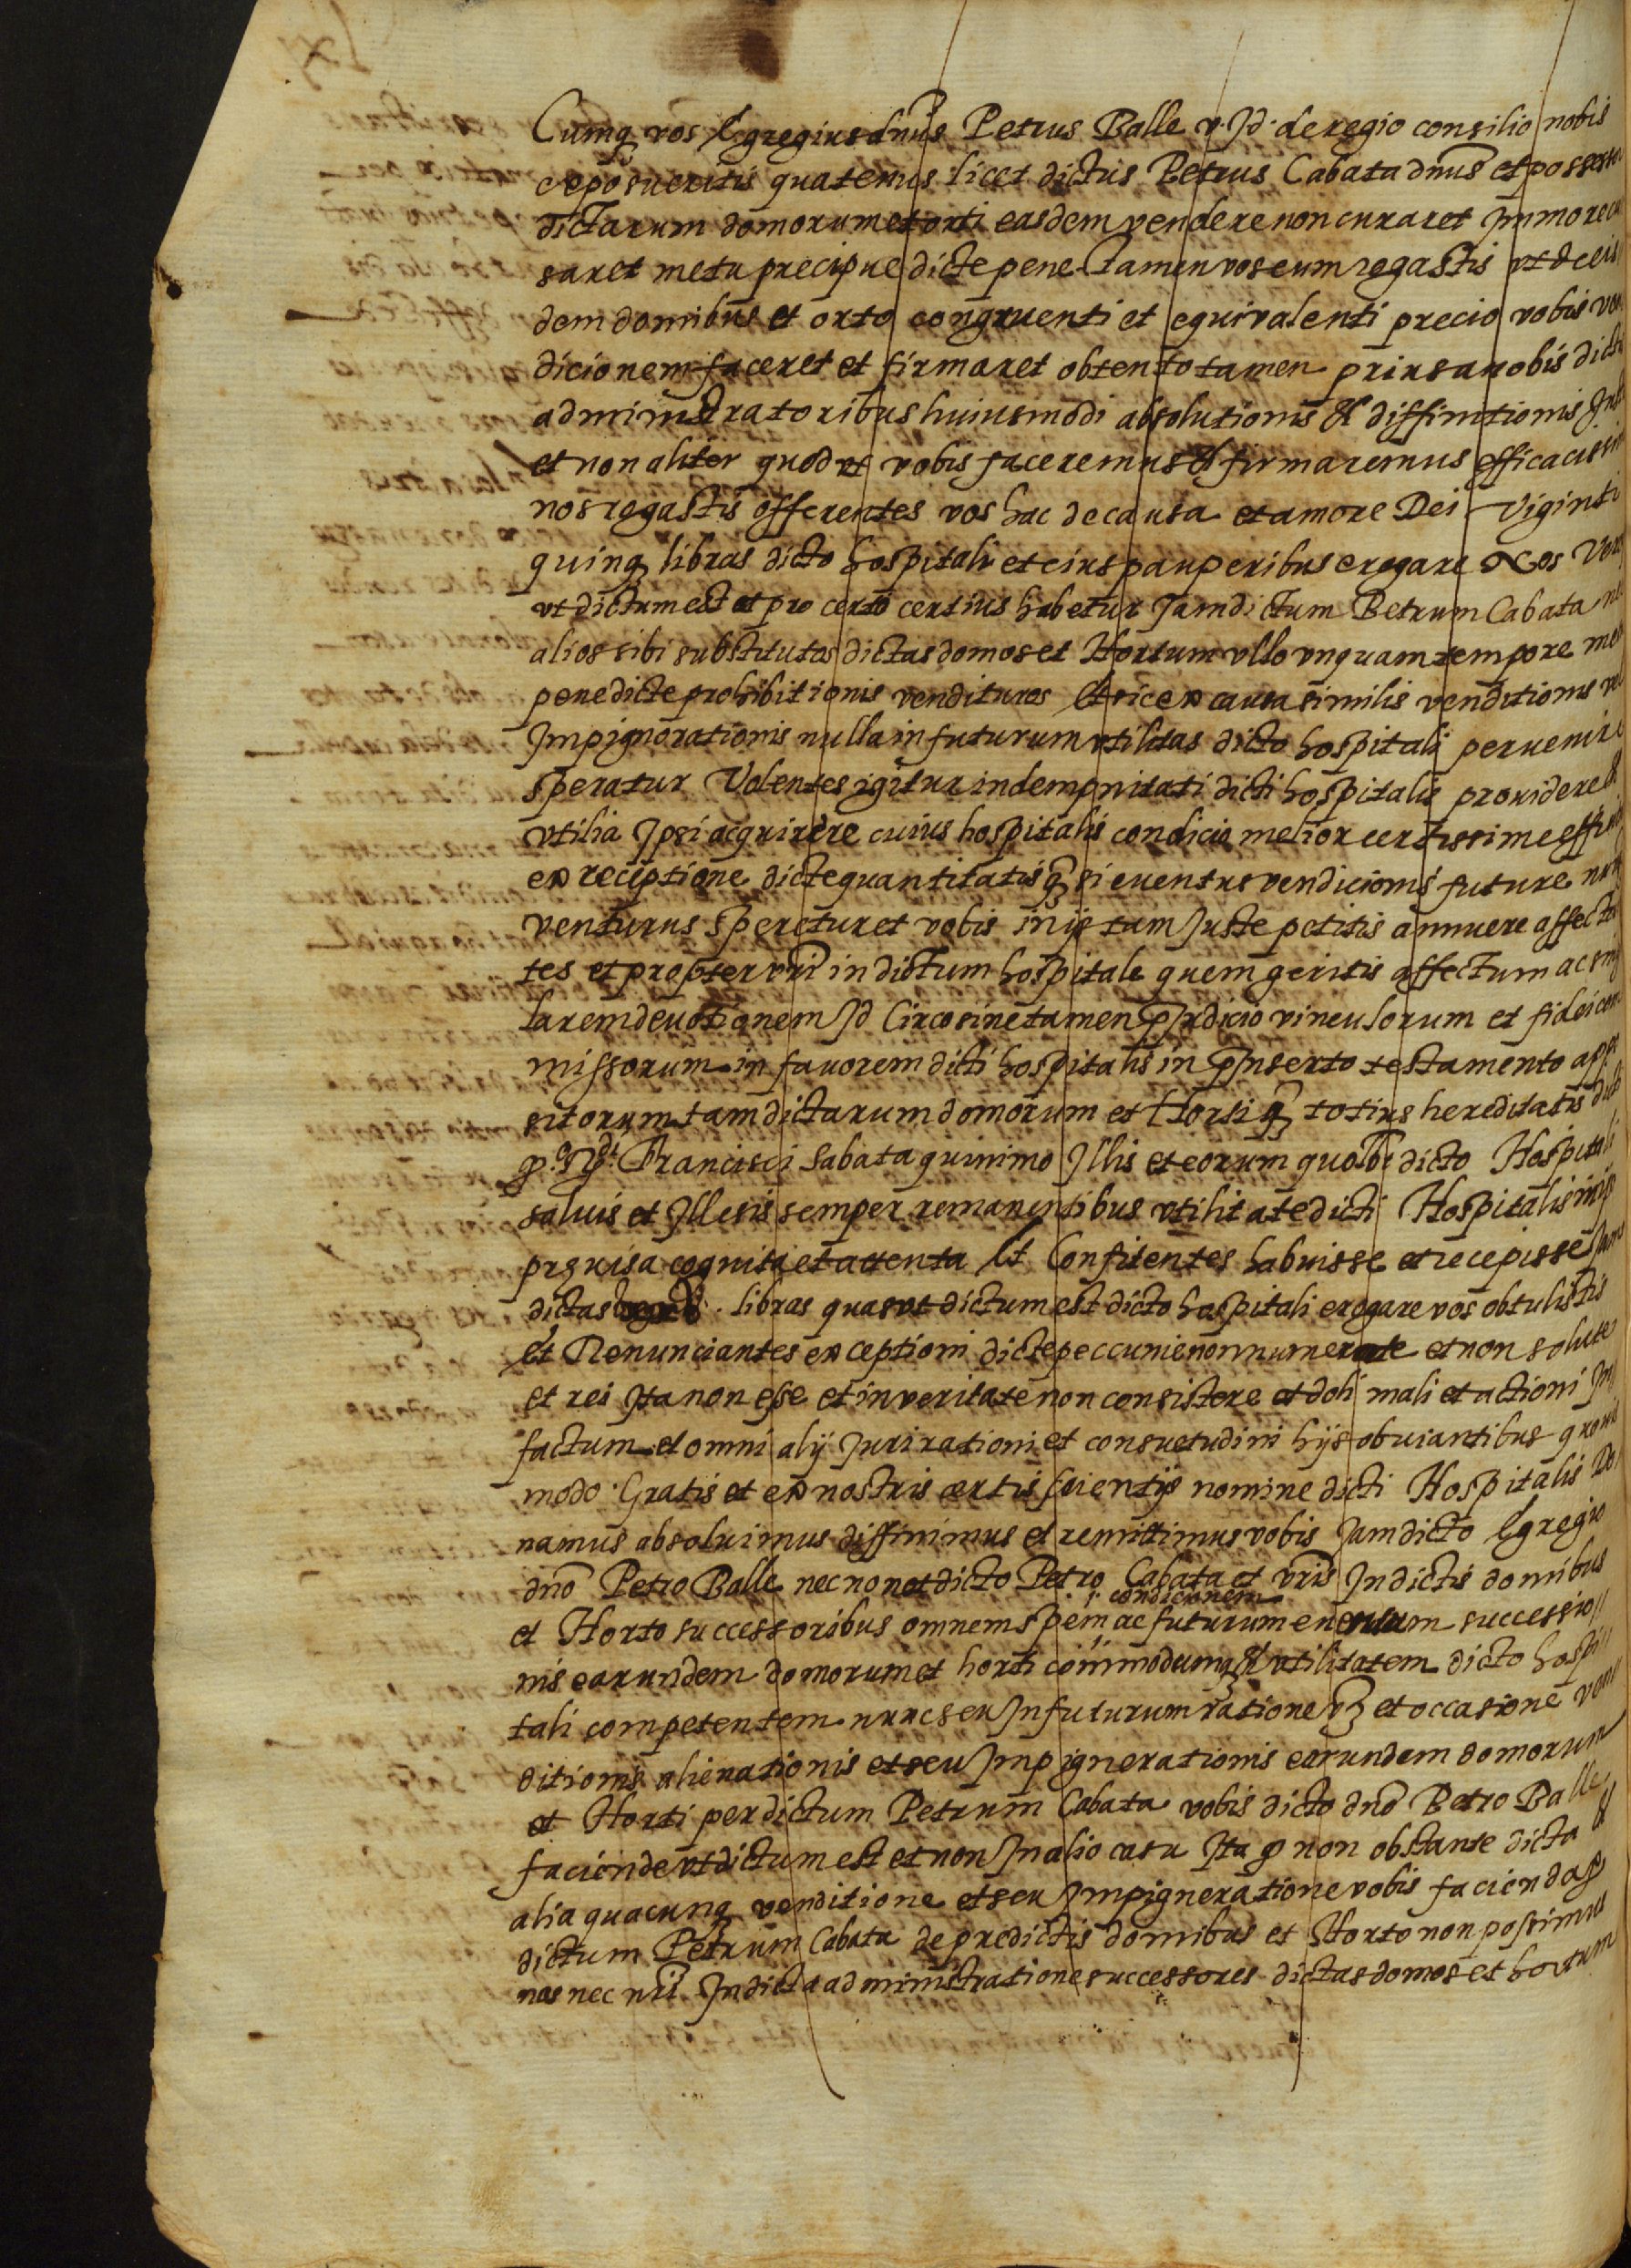 Cumq vos Egregius dnus Petrus Balle v. Jd. de regio consilio nobis
exposueritis quatenus licet dictus Petrus Cabata dnus et possesso
dictarum domorum et orti easdem vendere non curaret Jmmo recu
saret metu precipue dicte pene Tamen vos eum rogastis vt de eis
dem domibus et orto congruenti et equivalenti precio vobis ven
dicionem faceret et firmaret obtento tamen prius a nobis dicti
administratoribus huiusmodi absolutionis et diffinitionis
et non aliter quod vt vobis faceremus et firmaremus
nos rogastis offerentes vos hac de causa et amore Dei Viginti
quinq libras dicto hospitali et eius pauperibus erogare Nos Vero
vt dictum est et pro certo certius habetur Jamdictum Petrum Cabata
alios sibi substitutos dictas domos et Hortum vllo vnquam tempore
pene dicte prohibitionis vendituros Et sic ex causa similis venditionis vel
Jmpignorationis nulla in futurum vtilitas dicto hospitali pervenire
speratur Volentes igitur indempnitati dicti hospitalis providere et
vtilia Jpsi acquirere cuius hospitalis condicio melior certissime
ex receptione dicte quantitatis q si eventus vendicionis future
venturus speretur et vobis in ijs tam Juste petitis annuere affectan
tes et propter vri in dictum hospitale quem geritis affectum ac
larem devotionem Jd Circo sine tamen pJudicio vinculorum et fideicom
missorum in favorem dicti hospitalis in pJnserto testamento appo
sitorum tam dictarum domorum et Horti q totius hereditatis
Francisci Sabata quinimo Jllis et eorum dicto Hospitali
salvis et Jllesis semper remanentibus vtilitate dicti Hospitalis
previsa cognita et attenta Et Confitentes habuisse et recepisse Jam
dictas libras quas vt dictum est dicto hospitali erogare vos obtulistis
Et Renunciantes exceptioni dicte peccunie non numerate et non solute
et rei Jta non esse et in veritate non consistere et doli mali et actioni Jn
factum et omni alij Juri rationi et consuetudini hijs obviantibus
modo Gratis et ex nostris certis scientijs nomine dicti Hospitalis Do
namus absolvimus diffinimus et remittimus vobis Jamdicto Egregio
dno Petro Balle nec non et dicto Petro Cabata et vris Jn dictis domibus
condicionem
et Horto successoribus omnem spem ac futurum eventum successio
nis earundem domorum et horti commodumq et vtilitatem dicto hospi
tali competentem nunc seu Jn futurum ratione et occasione ven
ditionis alienationis et seu Jmpignerationis earundem domorum
et Horti per dictum Petrum Cabata vobis dicto dno Petro Balle
faciende vt dictum est et non Jn alio casu Jta q non obstante dicta et
alia quacunq venditione et seu Jmpigneratione vobis facienda p
dictum Petrum Cabata de predictis domibus et Horto non possimus
nos nec nri Jn dicta administratione successores dictas domos et hortum